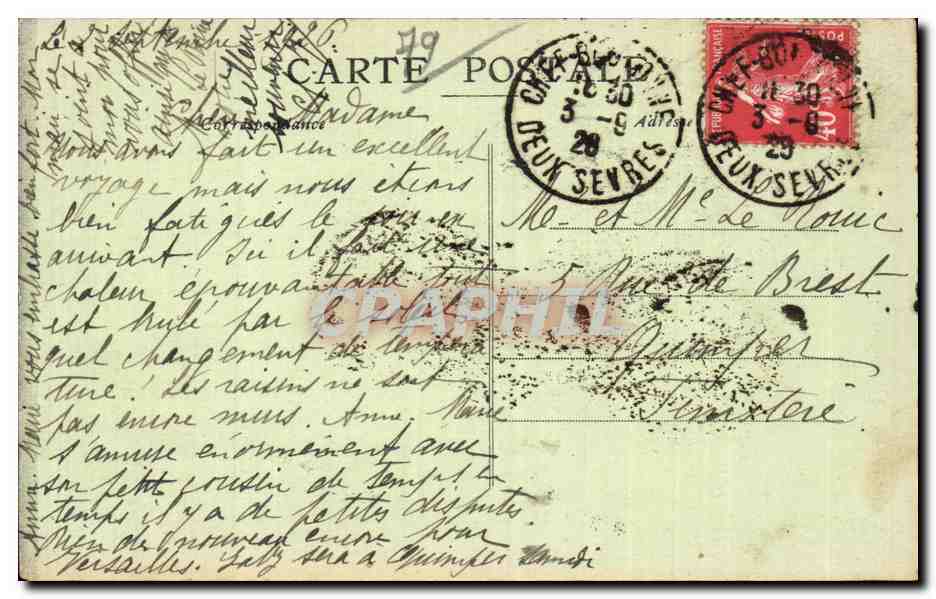 Le 2 Septembre 1926
79
CARTE POSTALE
Correspondance
Adresse
Madame
nous avons fait un excellent
voyage mais nous étions
bien fatigués le soir en
arrivant. Ici il fait une
chaleur épouvantable tout
est brulé par le soleil
quel changement de tempera
ture! Les raisins ne sont
pas encore murs. Anne-Marie
s'amuse énormément avec
son petit cousin de temps en
temps il y a de petites disputes.
Rien de nouveau encore pour
Versailles. sera à Quimper
Anne Marie vous embrasse bien fort. Mon
CHEF-BOUTONNE
8 30
3 - 9
26
DEUX SEVRES
CHEF-BOUTONNE
30
3 - 9
DEUX SEVRES
40
M. et Me Le Rouic
5 Rue de Brest
Quimper
Finistère
CPAPHIL